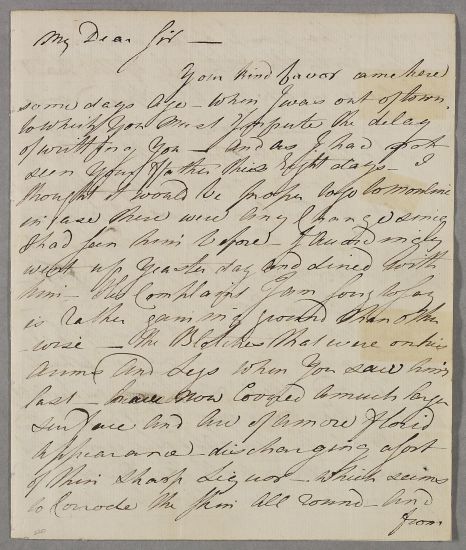 My Dear Sir —
Your kind favor came here
some days ago — when I was out of town,
to which You must Impute the delay
of writing You — and as I had not
seen Your Father this Eight days — I
thought it would be proper to go to
in case there were any Change since
I had seen him before — I accordingly
went up Yesterday and dined with
him — the Complaint I am sorry to say
is rather gaining ground than other
-wise — the Blotches that were on his
Arms and Legs when You saw him
last — have now Covered a much larger
Surface and are of a more florid
appearance — discharging a sort
of thin sharp Liquor — which seems
to Corrode the Skin all round — and
from